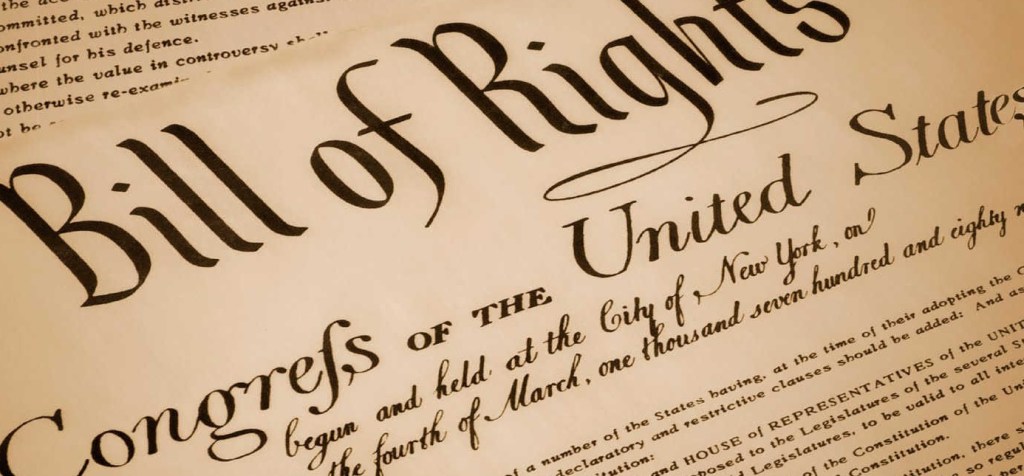 the acc
ommitted, which dist
onfronted with the witnesses agains
unsel for his defence.
where the value in controversy shall
otherwise re-exami
ot be
Bill of Rights
Congreſs OF THE United States
begun and held at the City of New York, on
the fourth of March, one thousand seven hundred and eighty n
of a number of the States having, at the time of their adopting the C
declaratory and restrictive clauses should be added: And as
itution:
and HOUSE of REPRESENTATIVES of the UNIT
posed to the Legislatures of the several S
Legislatures, to be valid to all inte
of the Constitution of the Uni
Constitution.
stitution, there s
so regul